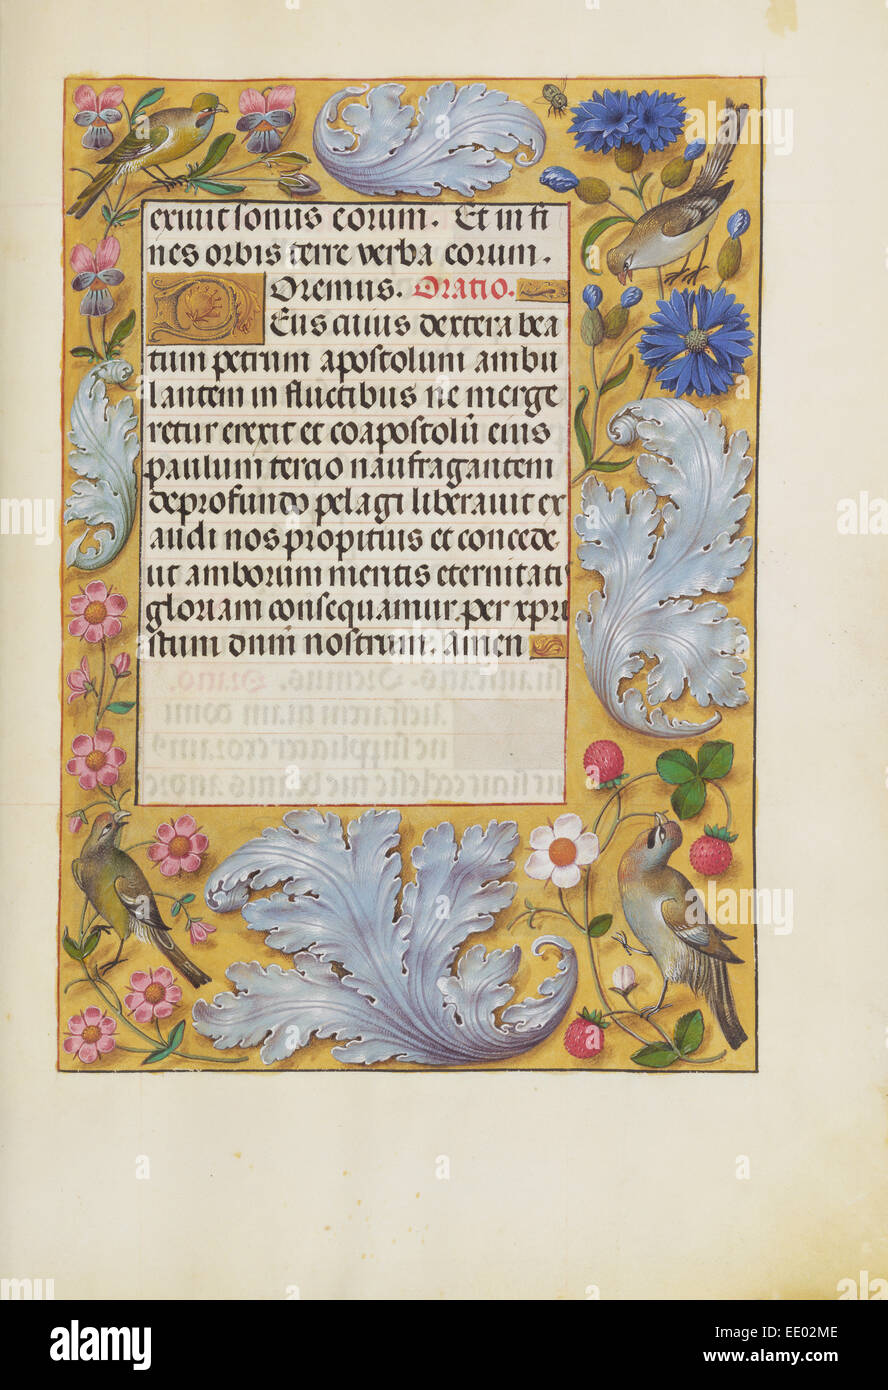 exiuit sonus eorum. Et in fi
nes orbis terre verba eorum.
Oremus. Oratio.
Deus cuius dextera bea
tum petrum apostolum ambu
lantem in fluctibus ne merge
retur erexit et coapostolū eius
paulum tercio naufragantem
de profundo pelagi liberauit ex
audi nos propitius et concede
ut amborum meritis eternitatis
gloriam consequamur. per xpri
stum dnm̄ nostrum. amen
a
alamy
alamy stock photo
EE02ME
www.alamy.com